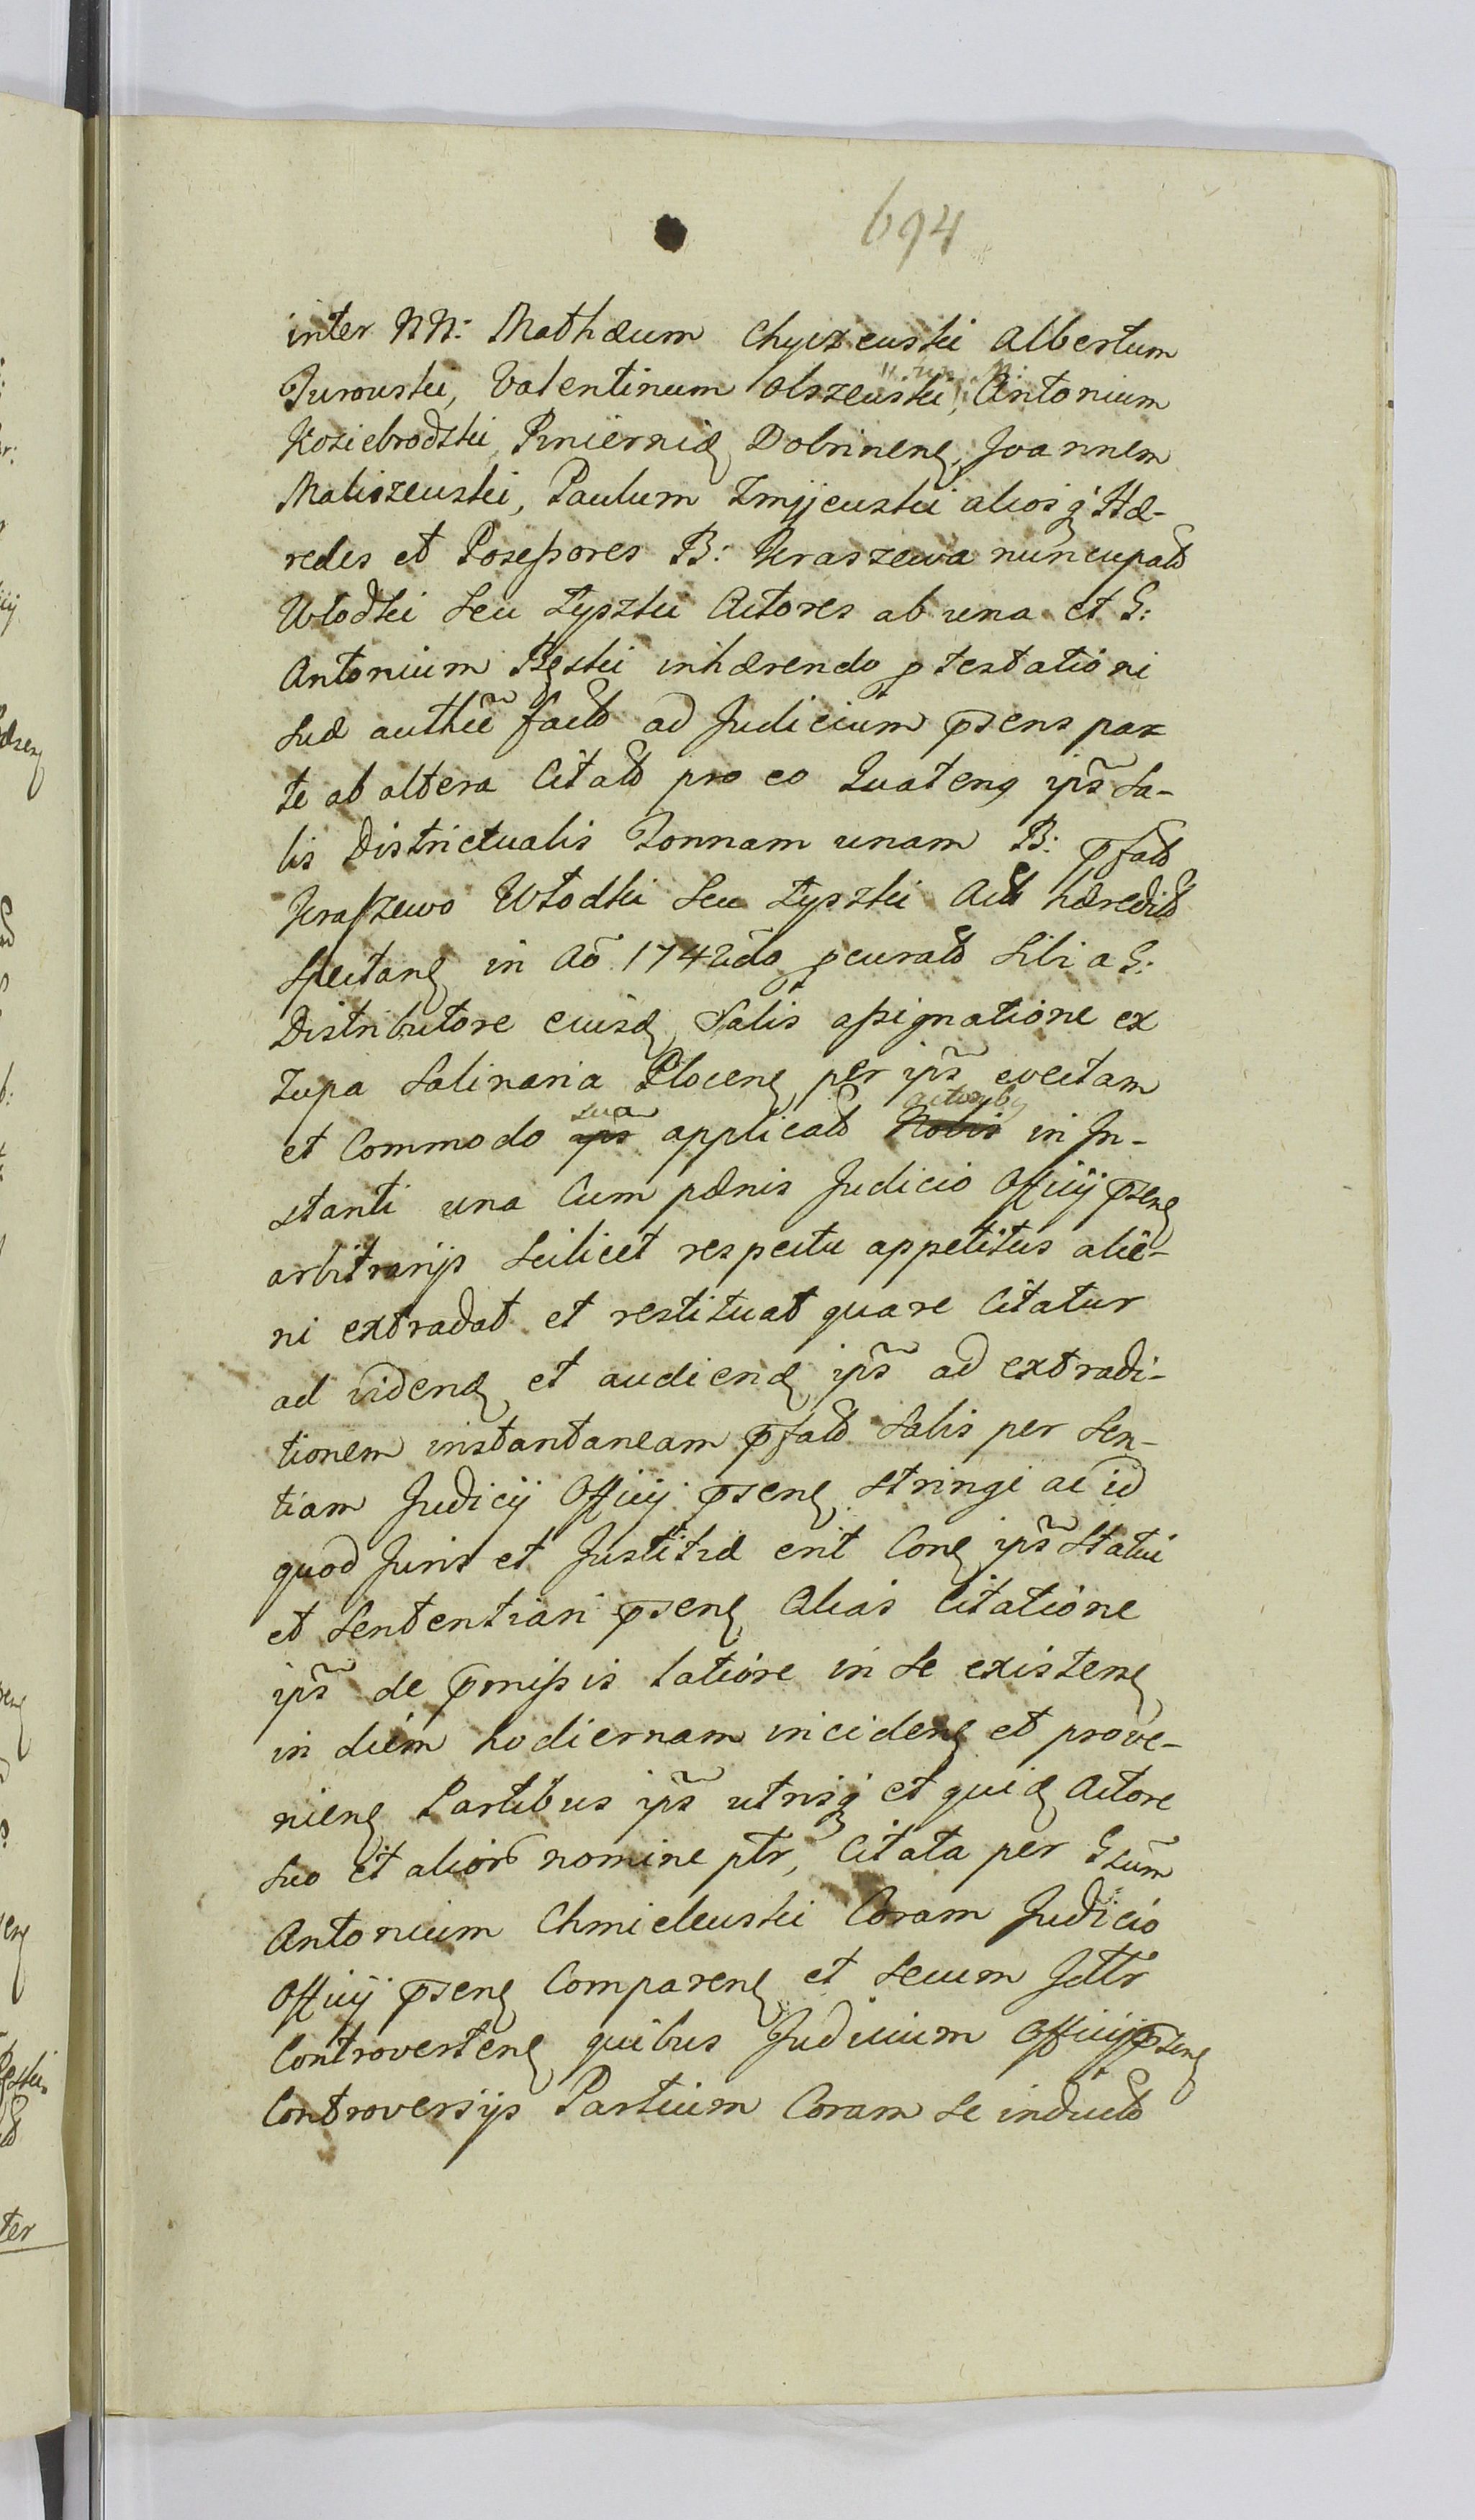 694
inter NN: Mathæum Chyczewski Albertum
Jurowski, Valentinum Olszewski, Antonium
Koziebrodzki, Pincernidę Dobrinenę, Joannem
Maliszewski, Paulum Żmijewski aliosq Hæ-
redes et Posessores B: Kraszewa nuncupatt
Włodki Seu Łyszki Actores ab una et G:
Antonium Rzęski inhærendo ptestationi
Suæ authcẽ factt ad Judicium pñsens par
te ab altera Citatt pro eo Quatenq ips̃ Sa-
lis Districtualis Tonnam unam B: pfatt
Kraszewo Włodki Seu Łyszki Actt hæreditt
Spectanę in Aõ 1742dõ pcuratt Sibi a G:
Distributore eiusdę Salis assignatione ex
Zupa Salinaria Plocenę per ips̃ evectam
et Commodo ips̃ sua applicatt Nobis actorib9 in In-
stanti una Cum pænis Judicio Officij psenę
arbitrarijs Scilicet respectu appetitus alie-
ni extradat et restituat quare Citatur
ad videndę et audiendę ips̃ ad extradi-
tionem instantaneam pfatt Salis per Sen-
tiam Judicij Officij psenę Stringi ac id
quod Juris et Justitiæ erit Conę ips̃ Statui
et Sententiari psenę Alias Citatione
ips̃ de pmissis latiore in Se existenę
in diem hodiernam incidenę et prove-
nienę Partibus ips̃ utrisq et quidę Actore
Suo et alior nomine ptr, Citata per Gsum̃
Antonium Chmielewski Coram Judicio
Officij psenę Comparenę et Secum Jdttr
Controvertenę quibus Judicium Officij psenę
Controversijs Partium Coram Se inductt